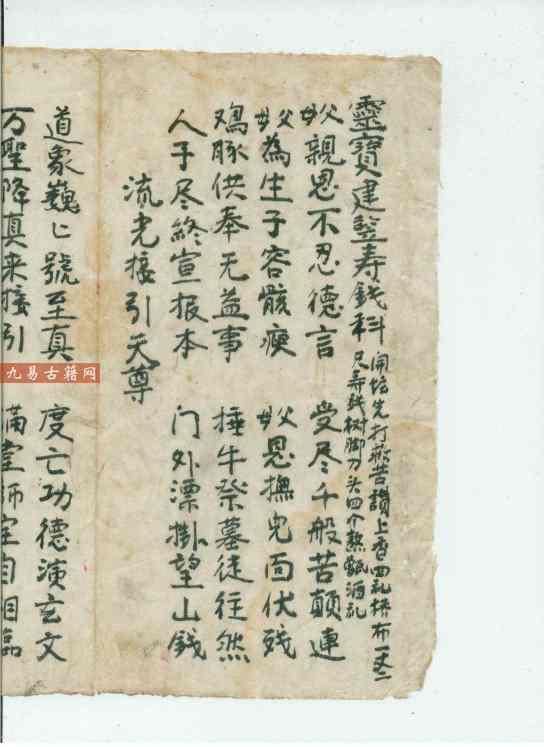 靈寶建竪寿錢科
開坛先打歎苦讃上香四礼
尺寿錢树脚刀头四个熟甑酒礼
父母親恩不忍德言 受尽千般苦顛連
父母為生子容骸瘐 父母恩撫兒面伏残
鸡豚供奉无益事 捶牛祭墓徒往然
人子尽終宣报本 门外漂掛望山錢
流光接引天尊
道象巍〻號至真 度亡功德演玄文
万聖降真来接引 满堂师宝自相臨
九易古籍网